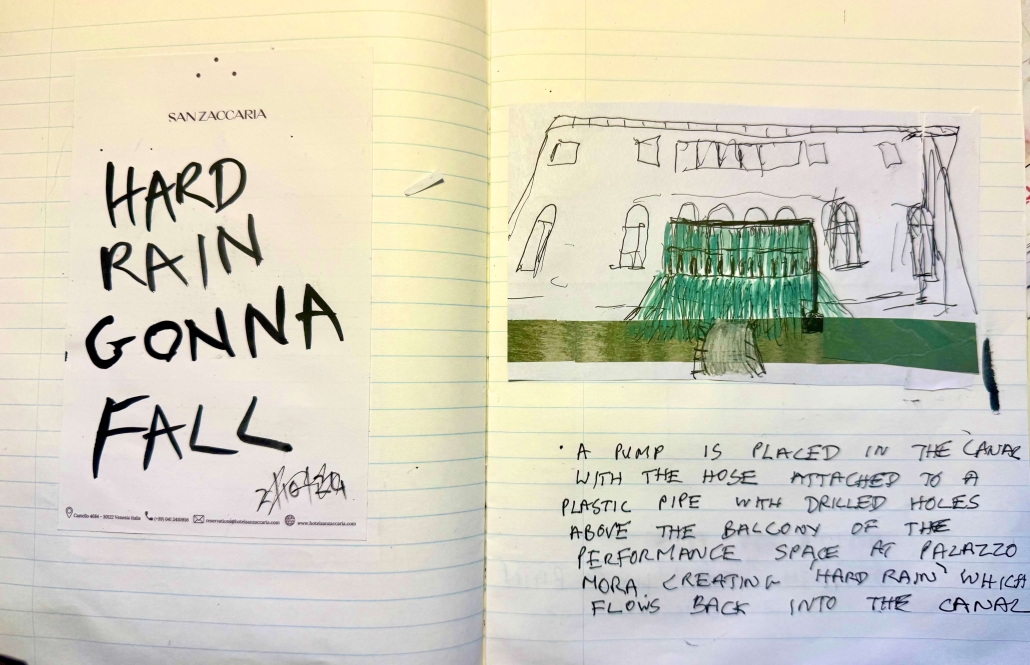 SAN ZACCARIA
HARD
RAIN
GONNA
FALL
Castello 4686 - 30122 Venezia Italia
www.hotelsanzaccaria.com
· A PUMP IS PLACED IN THE CANAL
WITH THE HOSE ATTACHED TO A
PLASTIC PIPE WITH DRILLED HOLES
ABOVE THE BALCONY OF THE
PERFORMANCE SPACE AT PALAZZO
MORA. CREATING 'HARD RAIN' WHICH
FLOWS BACK INTO THE CANAL